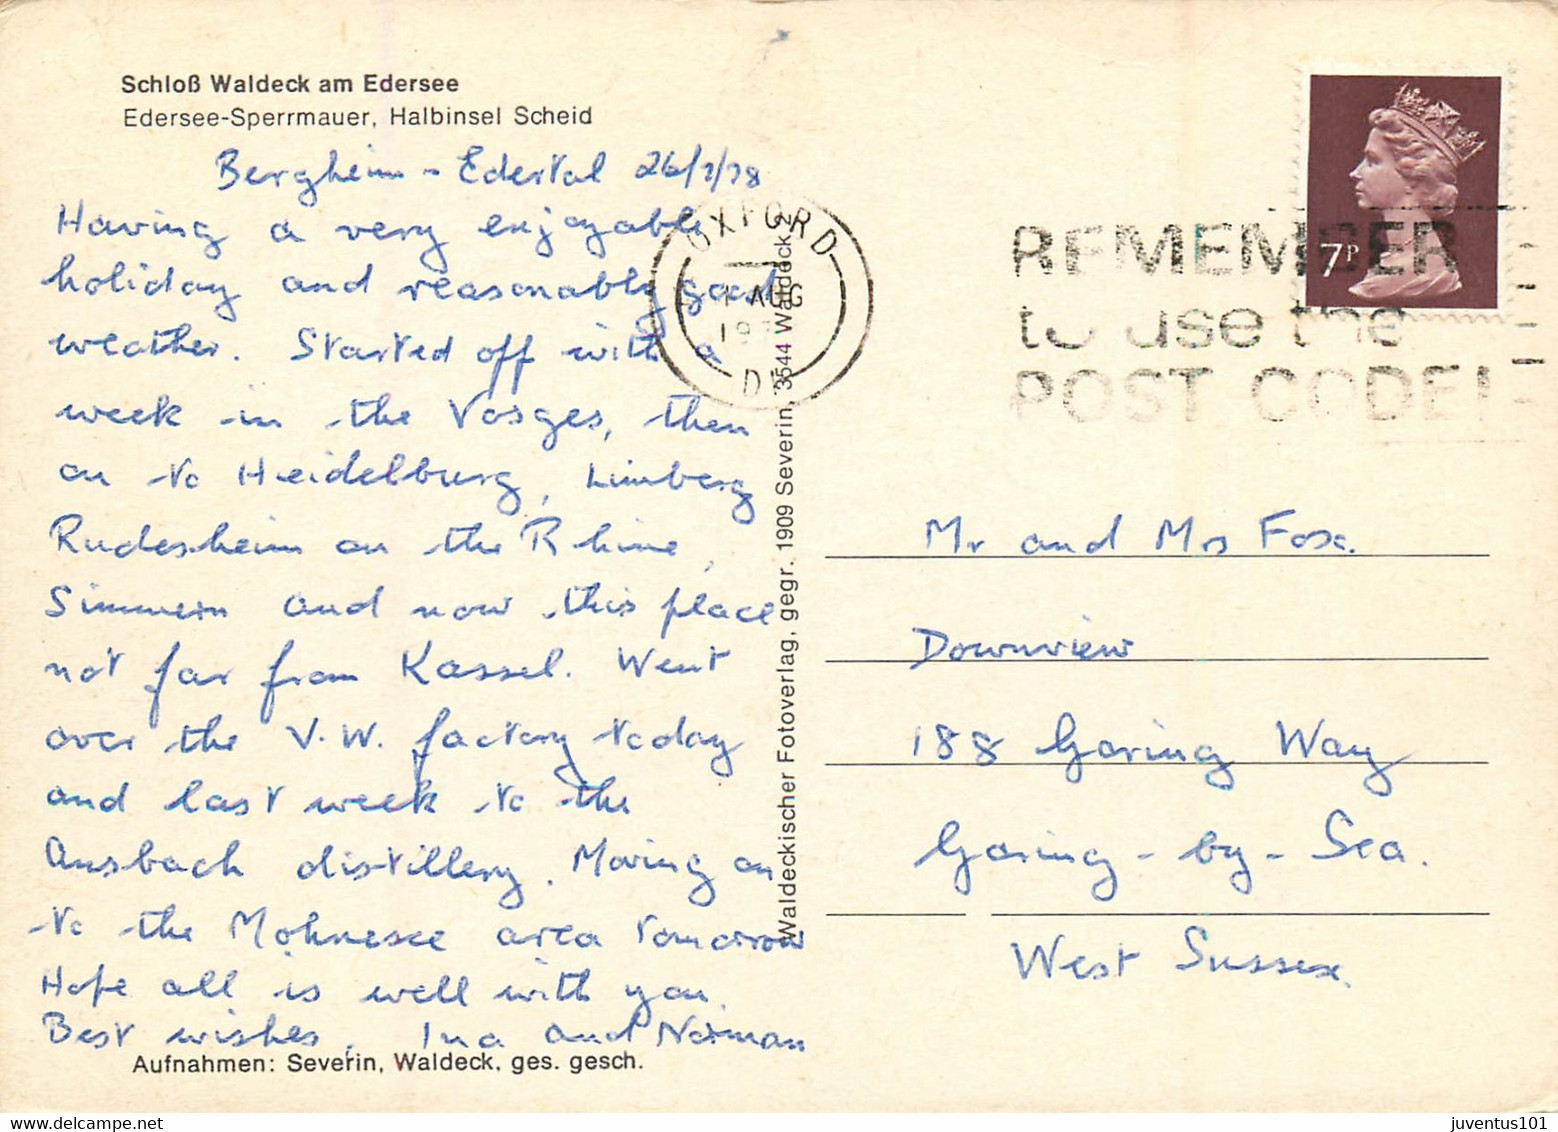 Schloß Waldeck am Edersee
Edersee-Sperrmauer, Halbinsel Scheid
Bergheim - Edertal 26/7/78
Having a very enjoyable
holiday and reasonably good
weather. Started off with a
week in the Vosges, then
on to Heidelburg, Limberg
Rudesheim on the Rhine,
Simmern and now this place
not far from Kassel. Went
over the V.W. factory today
and last week to the
Ansbach distillery. Moving on
to the Mohnesee area tomorrow
Hope all is well with you.
Best wishes. Ina and Norman
Aufnahmen: Severin, Waldeck, ges. gesch.
Waldeckischer Fotoverlag, gegr. 1909 Severin, 3544 Waldeck 2
OXFORD
AUG
197
D
REMEMBER
to use the
POST CODE!
7P
Mr and Mrs Fox.
Downview
188 Goring Way
Goring-by-Sea.
West Sussex.
juventus101